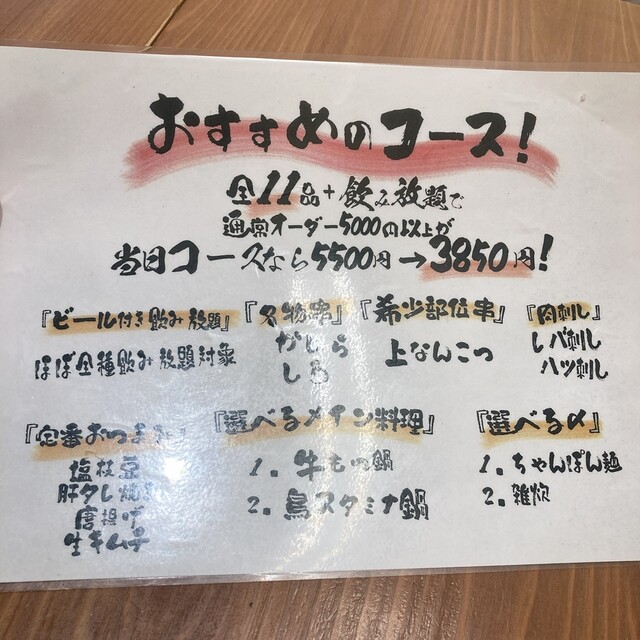 おすすめのコース!
全11品+飲み放題で
通常オーダー5000円以上が
当日コースなら5500円→3850円!
『ビール付き飲み放題』
ほぼ全種飲み放題対象
『名物串』
かしら
しろ
『希少部位串』
上なんこつ
『肉刺し』
レバ刺し
ハツ刺し
『定番おつまみ』
塩枝豆
肝タレ焼き
唐揚げ
生キムチ
『選べるメイン料理』
1. 牛もつ鍋
2. 鳥スタミナ鍋
『選べる〆』
1. ちゃんぽん麺
2. 雑炊